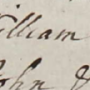 William
John